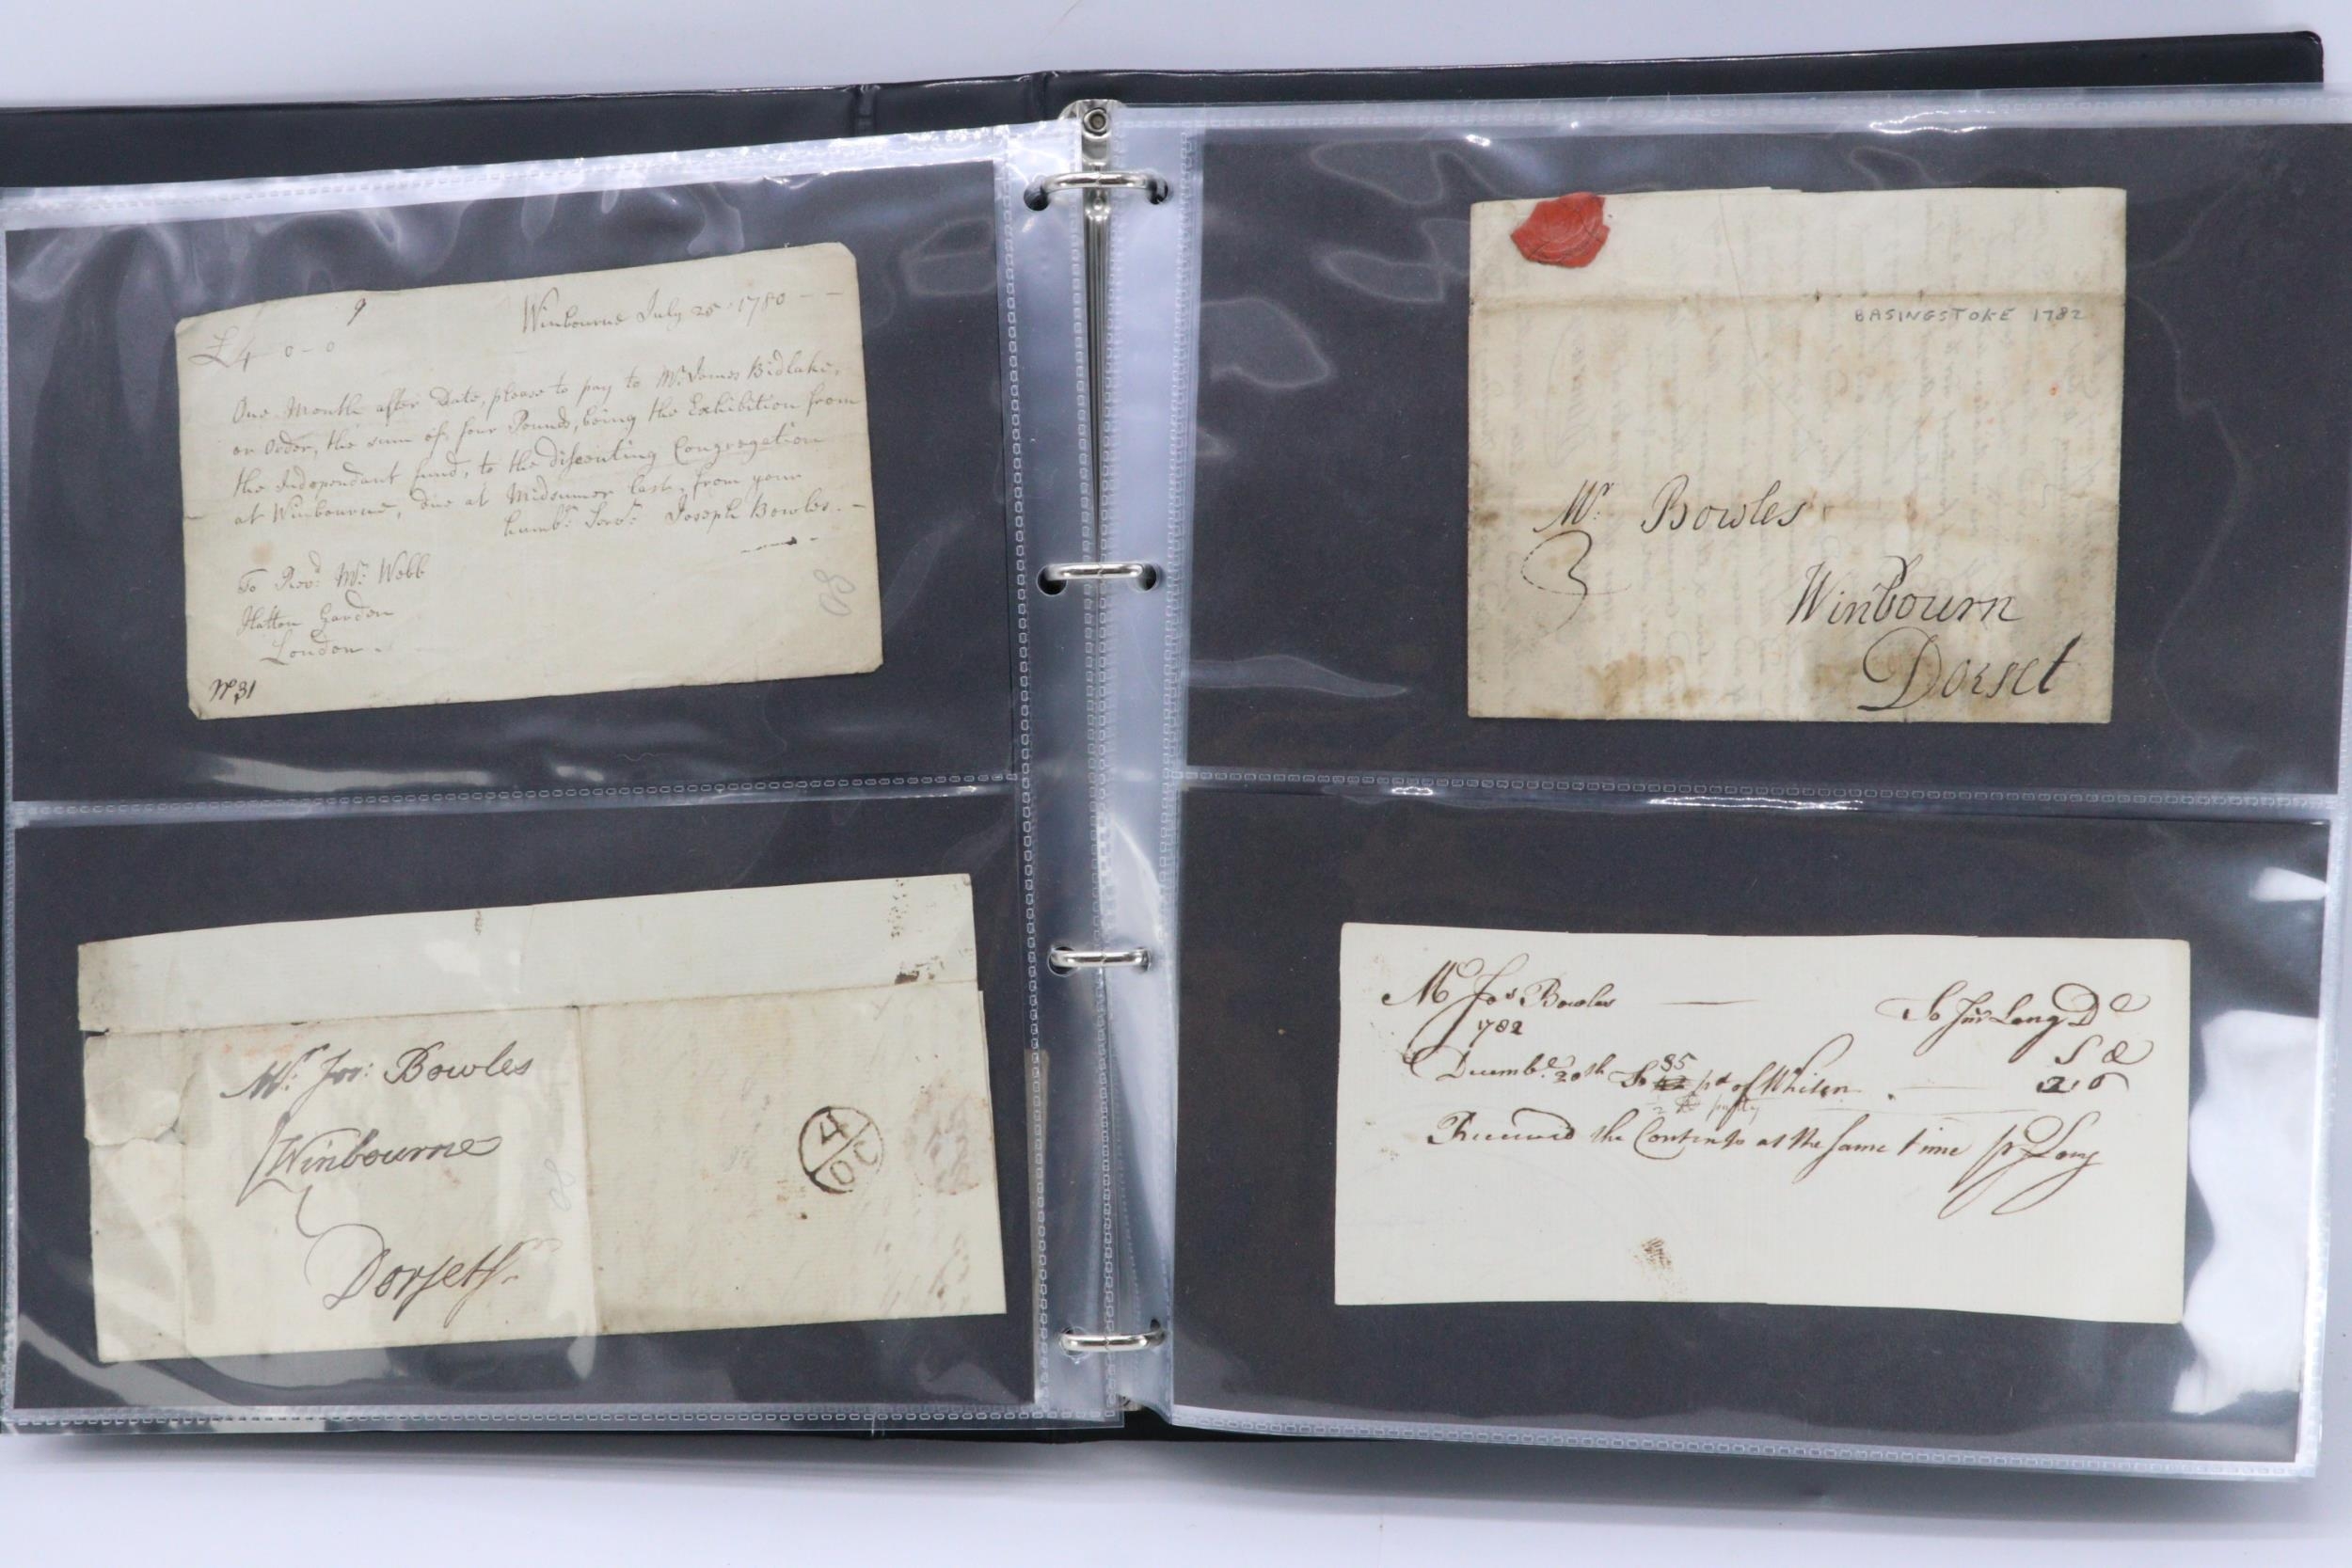 9
Winbourne July 25 1780
£4-0-0
One Month after Date, please to pay to Mr. James Bidlake,
or Order, the sum of four Pounds, being the Exhibition from
the Independant fund, to the dissenting Congregation
at Winbourne, due at Midsumer last, from your
humbl. Servt. Joseph Bowles.
To Revd. Mr. Webb
Hatton Garden
London.
No 31
80
Mr. Jos: Bowles
Winbourne
Dorset
80
4
OC
BASINGSTOKE 1782
Mr. Bowles
3
Winbourn
Dorset
Mr Jos Bowles
To Jno Long Dr
1782
S d
Decembr. 20th To 35 pd of
2:6
Received the Contents at the same time pr Long